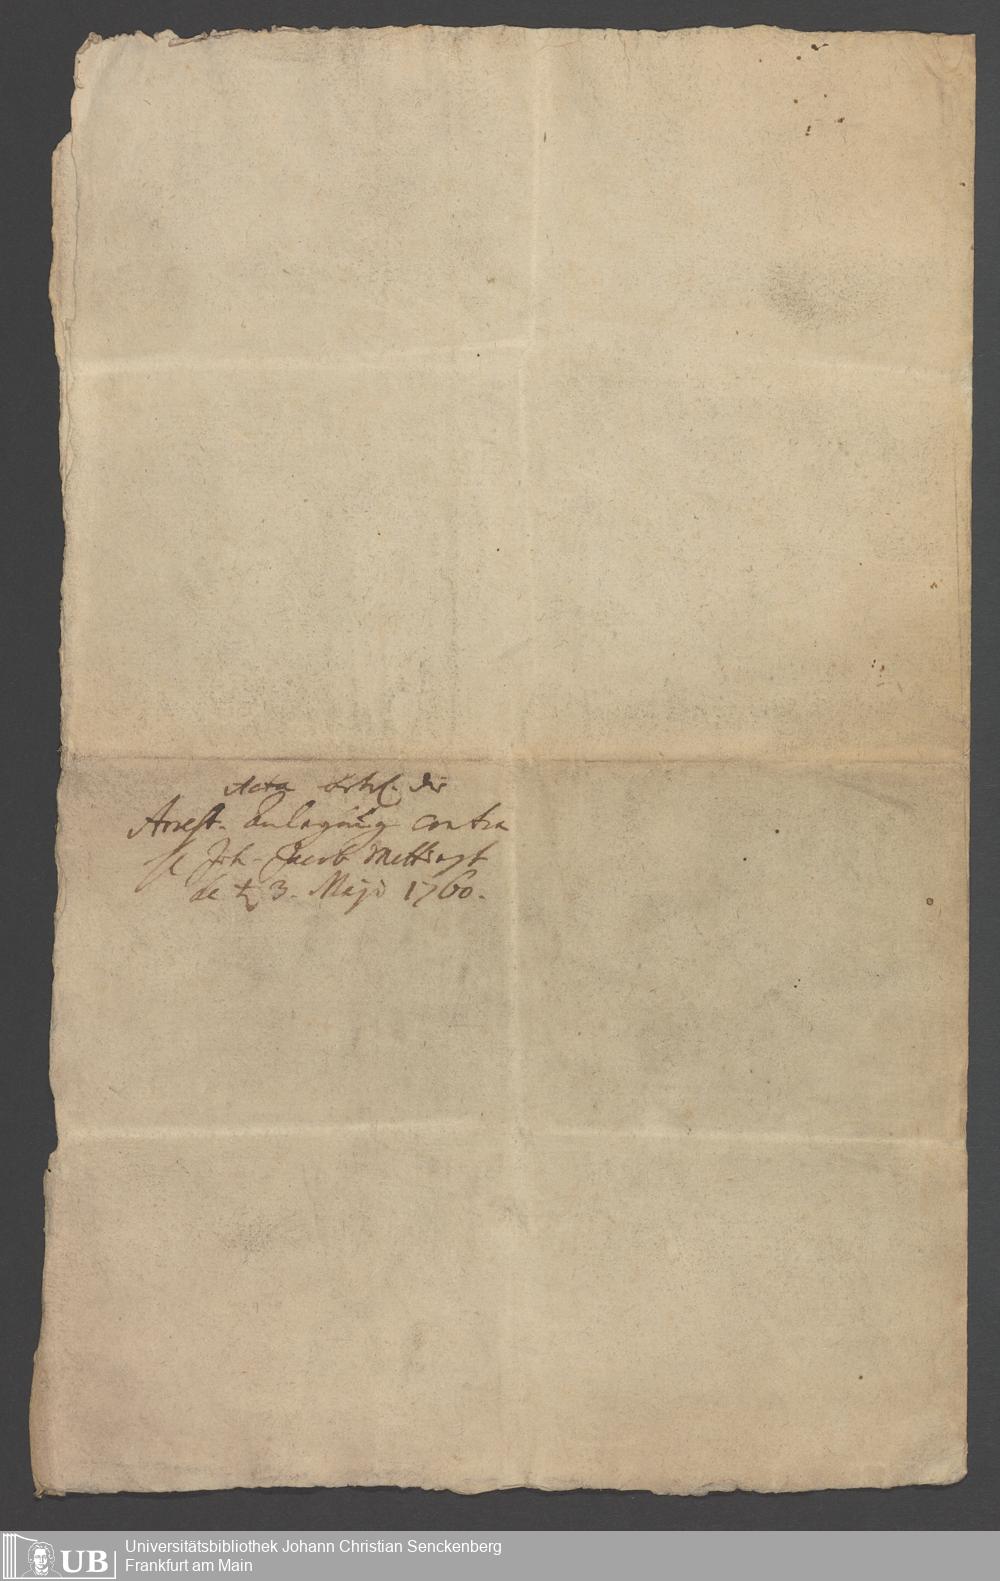 Acta betrf. die
Arrest-Anlegung contra
Joh. Jacob Mettingh
de 3. Maji 1760.
UB
Universitätsbibliothek Johann Christian Senckenberg
Frankfurt am Main